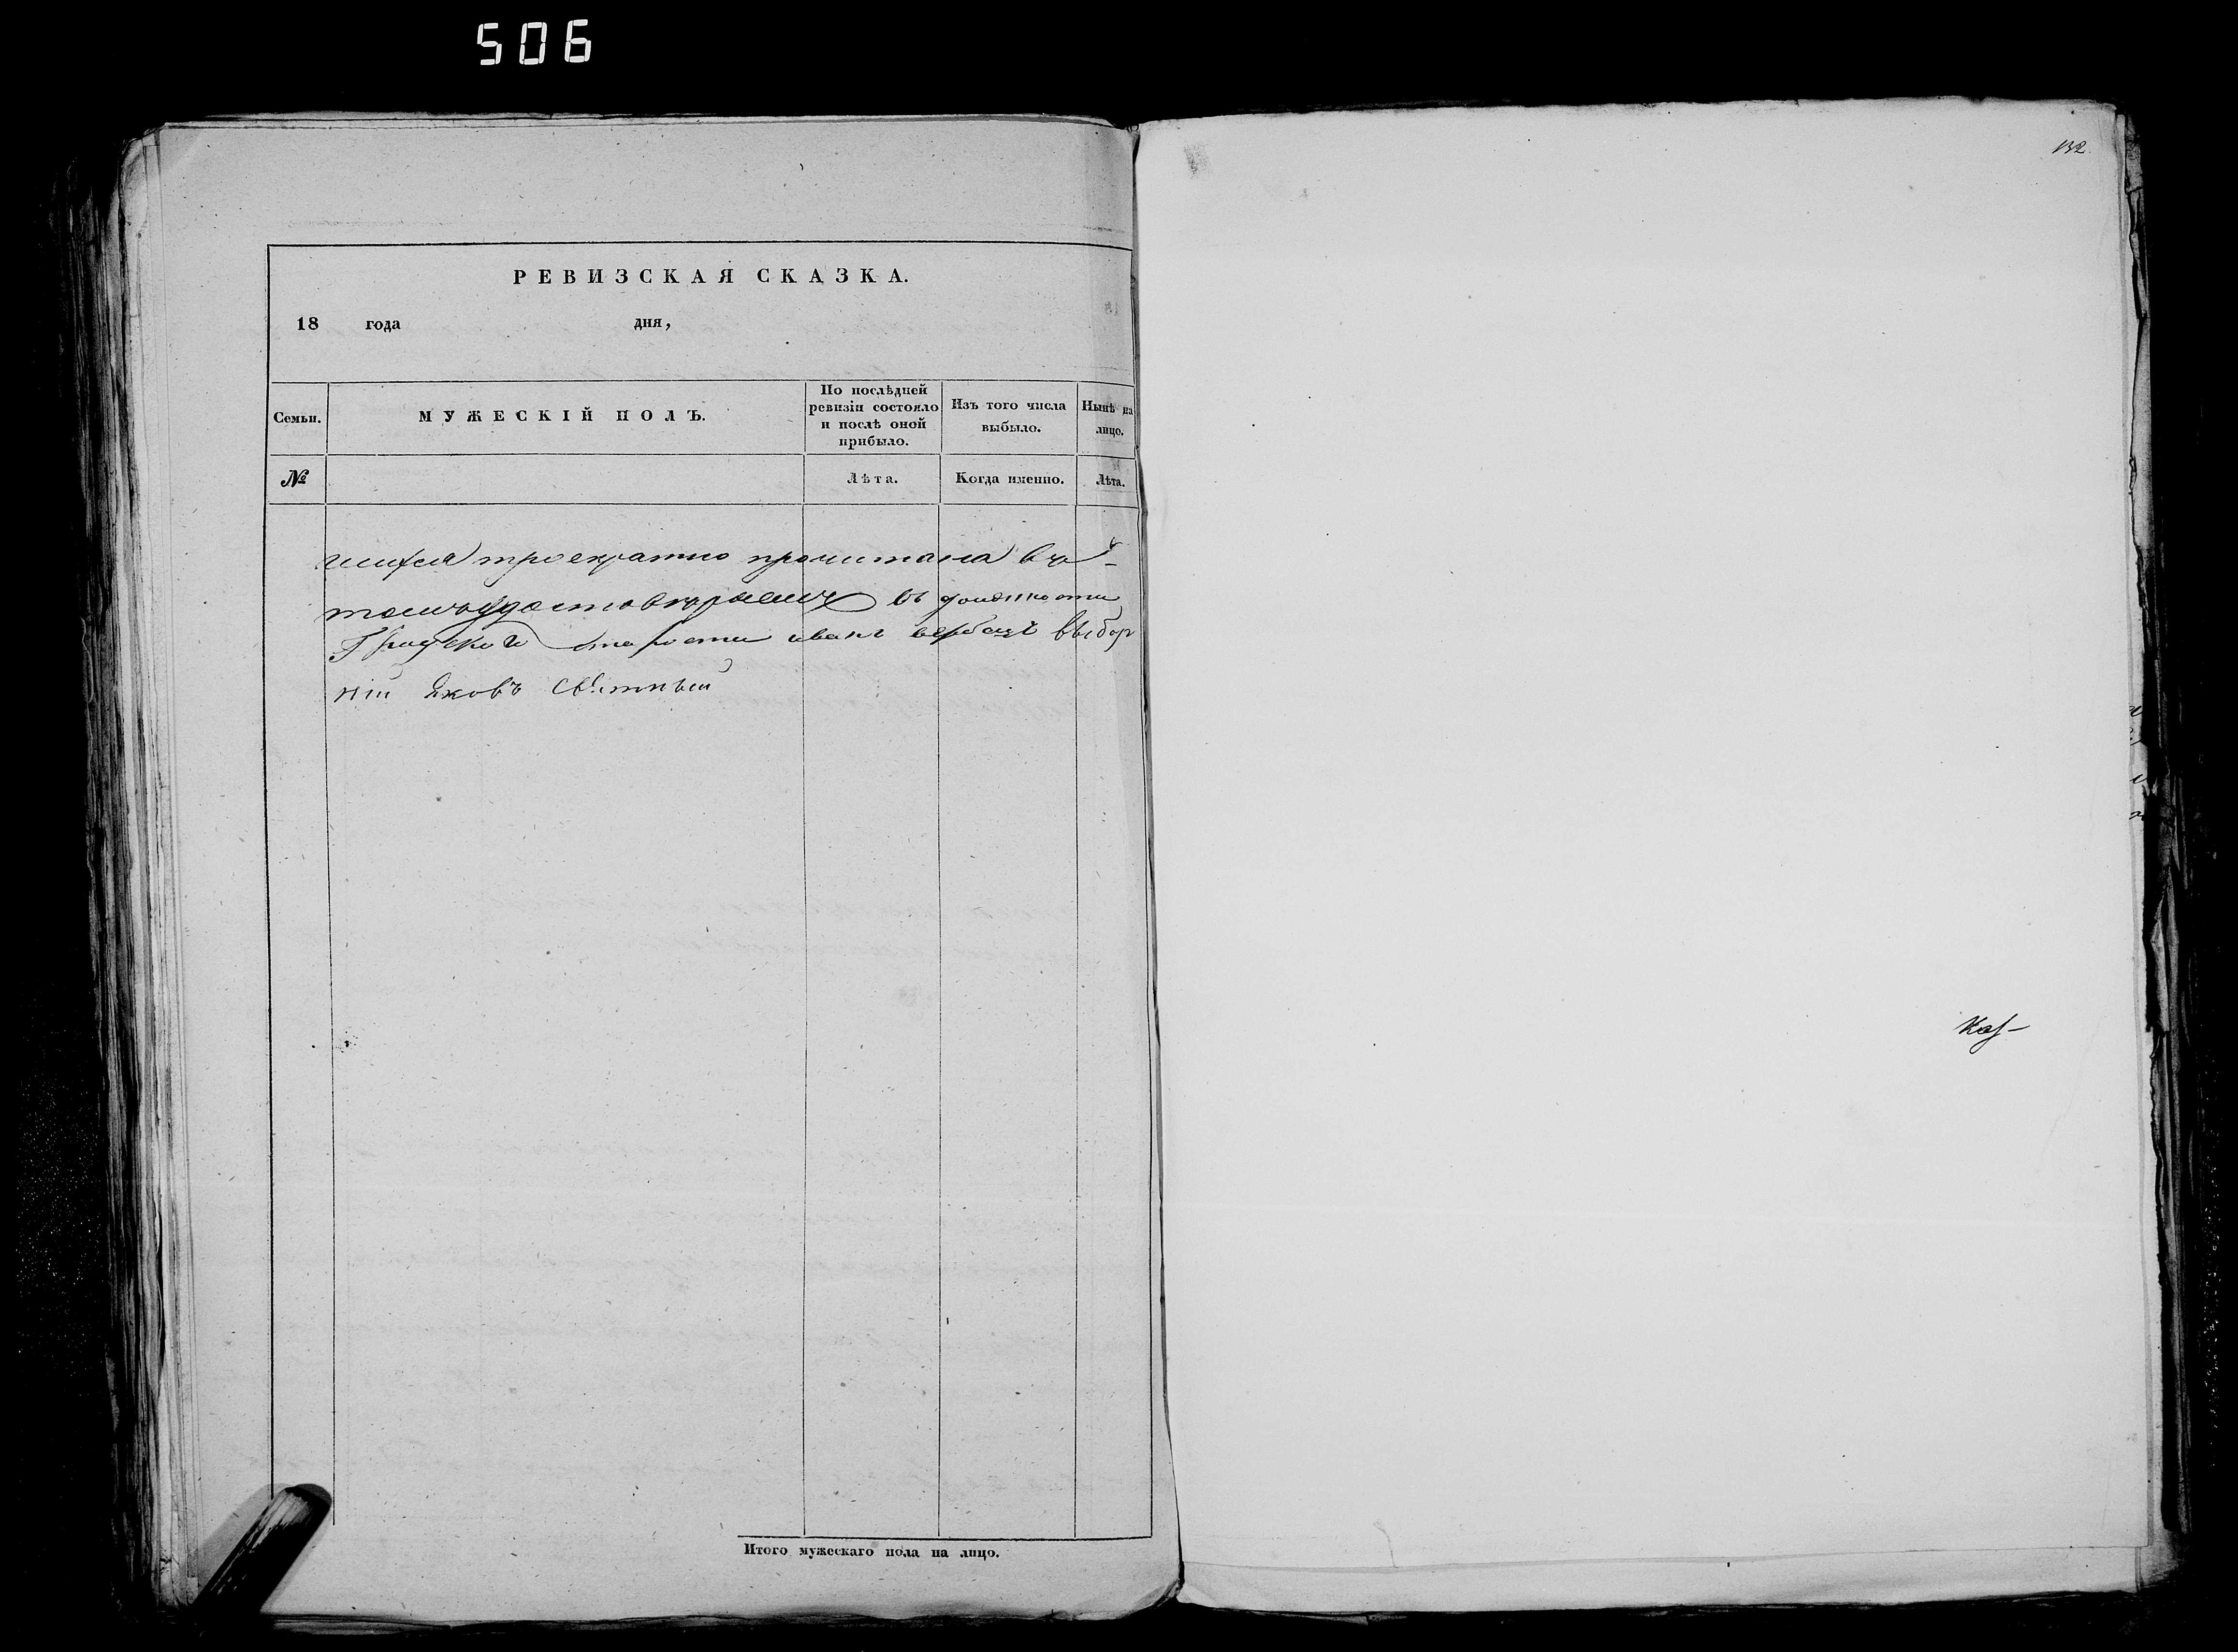 506
132
РЕВИЗСКАЯ СКАЗКА.
18 года дня,
Семьи.
МУЖЕСКІЙ ПОЛЪ.
По послѣдней ревизіи состояло и послѣ оной прибыло.
Изъ того числа выбыло.
Нынѣ на лицо.
№
Лѣта.
Когда именно.
Лѣта.
троекратно прочитана въ
томъ удостовѣряемъ въ должности
иванъ выбор
ній Яковъ
Итого мужескаго пола на лицо.